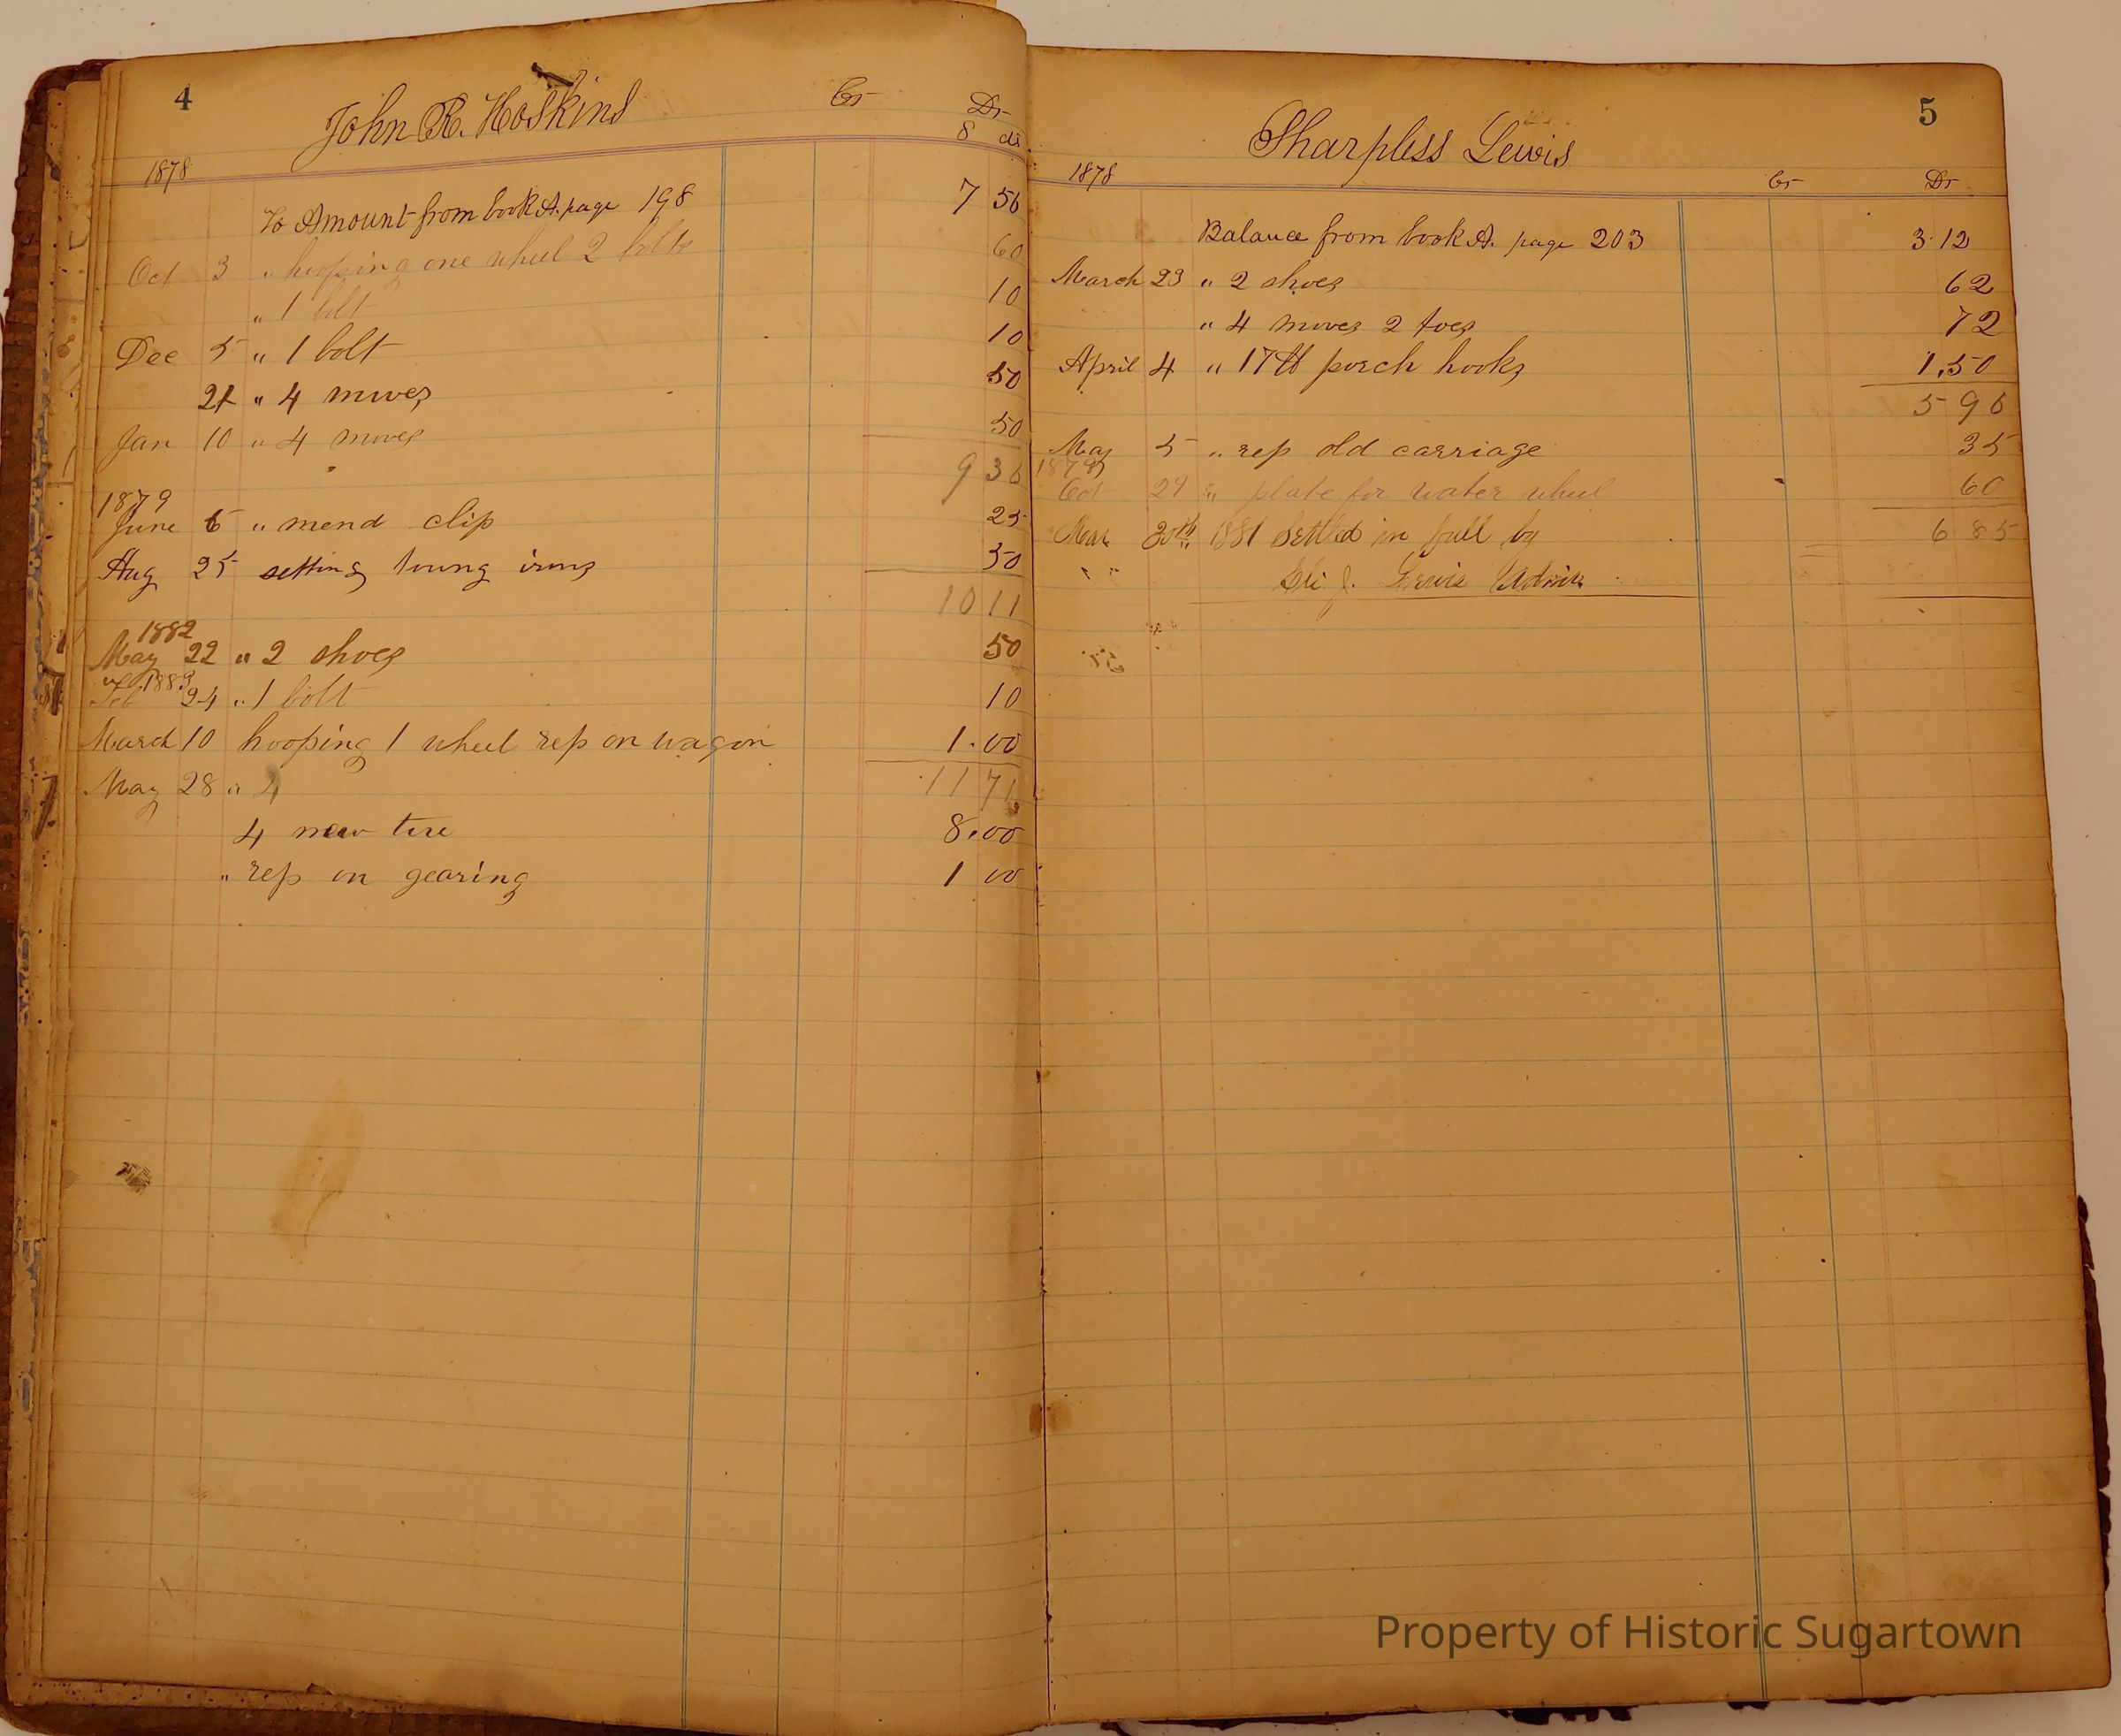 4
John R. Hoskins Cr Dr
$ cts
1878
To Amount from book A. page 198 7 56
Oct 3 " hooping one wheel 2 bolts 60
" 1 bolt 10
Dec 5 " 1 bolt 10
21 " 4 moves 50
Jan 10 " 4 moves 50
9 36
1879
June 6 " mend clip 25
Aug 25 setting toung irons 50
10 11
1882
May 22 " 2 shoes 50
1883
Feb 24 " 1 bolt 10
March 10 hooping 1 wheel rep on wagon 1.00
May 28 " 4 11 71
4 new tire 8.00
" rep on gearing 1 00
5
Sharpless Lewis
1878 Cr Dr
Balance from book A. page 203 3.12
March 23 " 2 shoes 62
" 4 moves 2 toes 72
April 4 " 17 lb porch hooks 1.50
5 96
May 5 " rep old carriage 35
1879
Oct 29 " plate for water wheel 60
Mar 1881 Settled in full by 6 85
Eli J. Lewis Admin
Property of Historic Sugartown